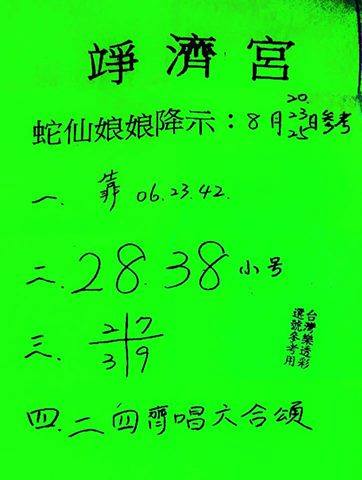 竫濟宮
蛇仙娘娘降示：8月20.23.25日參考
一、靠 06.23.42.
二.28.38小号
三.
2 7
3 9
台灣樂透彩
選號參考用
四.二四齊唱六合頌